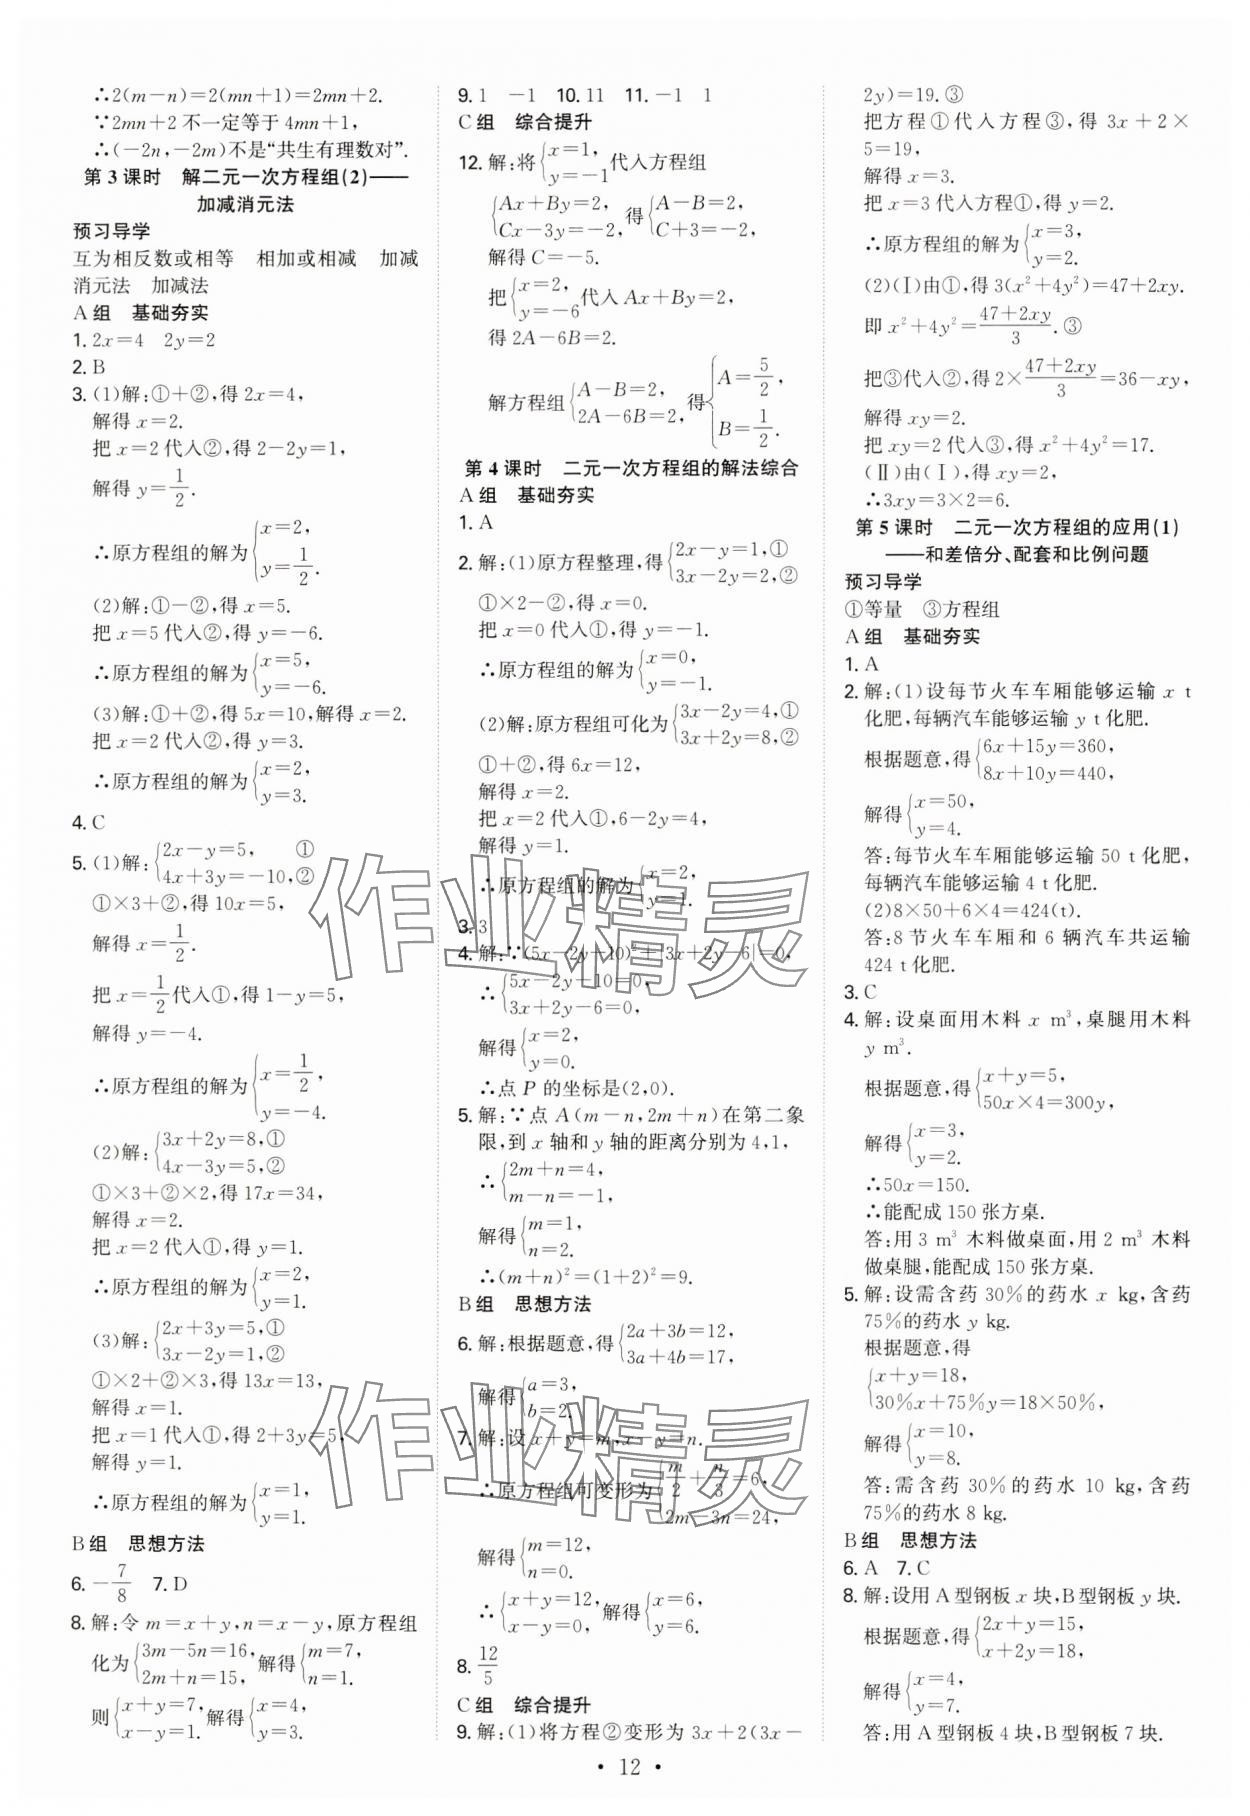 ∴2(m－n)=2(mn+1)=2mn+2.
∵2mn+2 不一定等于 4mn+1,
∴(－2n,－2m)不是“共生有理数对”.
第 3 课时　解二元一次方程组(2)——
加减消元法
预习导学
互为相反数或相等　相加或相减　加减
消元法　加减法
A 组　基础夯实
1. 2x=4　2y=2
2. B
3. (1)解:①+②,得 2x=4,
解得 x=2.
把 x=2 代入②,得 2－2y=1,
解得 y=1/2.
∴原方程组的解为{x=2, y=1/2.
(2)解:①－②,得 x=5.
把 x=5 代入②,得 y=－6.
∴原方程组的解为{x=5, y=－6.
(3)解:①+②,得 5x=10,解得 x=2.
把 x=2 代入②,得 y=3.
∴原方程组的解为{x=2, y=3.
4. C
5. (1)解:{2x－y=5,　① 4x+3y=－10,②
①×3+②,得 10x=5,
解得 x=1/2.
把 x=1/2代入①,得 1－y=5,
解得 y=－4.
∴原方程组的解为{x=1/2, y=－4.
(2)解:{3x+2y=8,① 4x－3y=5,②
①×3+②×2,得 17x=34,
解得 x=2.
把 x=2 代入①,得 y=1.
∴原方程组的解为{x=2, y=1.
(3)解:{2x+3y=5,① 3x－2y=1,②
①×2+②×3,得 13x=13,
解得 x=1.
把 x=1 代入①,得 2+3y=5,
解得 y=1.
∴原方程组的解为{x=1, y=1.
B 组　思想方法
6. －7/8　7. D
8. 解:令 m=x+y,n=x－y,原方程组
化为{3m－5n=16, 2m+n=15,解得{m=7, n=1.
则{x+y=7, x－y=1.解得{x=4, y=3.
9. 1　－1　10. 11　11. －1　1
C 组　综合提升
12. 解:将{x=1, y=－1代入方程组
{Ax+By=2, Cx－3y=－2,得{A－B=2, C+3=－2,
解得 C=－5.
把{x=2, y=－6代入 Ax+By=2,
得 2A－6B=2.
解方程组{A－B=2, 2A－6B=2,得{A=5/2, B=1/2.
第 4 课时　二元一次方程组的解法综合
A 组　基础夯实
1. A
2. 解:(1)原方程整理,得{2x－y=1,① 3x－2y=2,②
①×2－②,得 x=0.
把 x=0 代入①,得 y=－1.
∴原方程组的解为{x=0, y=－1.
(2)解:原方程组可化为{3x－2y=4,① 3x+2y=8,②
①+②,得 6x=12,
解得 x=2.
把 x=2 代入①,6－2y=4,
解得 y=1.
∴原方程组的解为{x=2, y=1.
3. 3
4. 解:∵(5x－2y+10)²+|3x+2y－6|=0,
∴{5x－2y－10=0, 3x+2y－6=0,
解得{x=2, y=0.
∴点 P 的坐标是(2,0).
5. 解:∵点 A(m－n,2m+n)在第二象
限,到 x 轴和 y 轴的距离分别为 4,1,
∴{2m+n=4, m－n=－1,
解得{m=1, n=2.
∴(m+n)²=(1+2)²=9.
B 组　思想方法
6. 解:根据题意,得{2a+3b=12, 3a+4b=17,
解得{a=3, b=2.
7. 解:设 x+y=m,x－y=n.
∴原方程组可变形为{m/2+n/3=6, 2m－3n=24,
解得{m=12, n=0.
∴{x+y=12, x－y=0,解得{x=6, y=6.
8. 12/5
C 组　综合提升
9. 解:(1)将方程②变形为 3x+2(3x－
2y)=19. ③
把方程①代入方程③,得 3x+2×
5=19,
解得 x=3.
把 x=3 代入方程①,得 y=2.
∴原方程组的解为{x=3, y=2.
(2)(Ⅰ)由①,得 3(x²+4y²)=47+2xy.
即 x²+4y²=(47+2xy)/3. ③
把③代入②,得 2×(47+2xy)/3=36－xy,
解得 xy=2.
把 xy=2 代入③,得 x²+4y²=17.
(Ⅱ)由(Ⅰ),得 xy=2,
∴3xy=3×2=6.
第 5 课时　二元一次方程组的应用(1)
——和差倍分、配套和比例问题
预习导学
①等量　③方程组
A 组　基础夯实
1. A
2. 解:(1)设每节火车车厢能够运输 x t
化肥,每辆汽车能够运输 y t 化肥.
根据题意,得{6x+15y=360, 8x+10y=440,
解得{x=50, y=4.
答:每节火车车厢能够运输 50 t 化肥,
每辆汽车能够运输 4 t 化肥.
(2)8×50+6×4=424(t).
答:8 节火车车厢和 6 辆汽车共运输
424 t 化肥.
3. C
4. 解:设桌面用木料 x m³,桌腿用木料
y m³.
根据题意,得{x+y=5, 50x×4=300y,
解得{x=3, y=2.
∴50x=150.
∴能配成 150 张方桌.
答:用 3 m³ 木料做桌面,用 2 m³ 木料
做桌腿,能配成 150 张方桌.
5. 解:设需含药 30%的药水 x kg,含药
75%的药水 y kg.
根据题意,得
{x+y=18, 30%x+75%y=18×50%,
解得{x=10, y=8.
答:需含药 30%的药水 10 kg,含药
75%的药水 8 kg.
B 组　思想方法
6. A　7. C
8. 解:设用 A 型钢板 x 块,B 型钢板 y 块.
根据题意,得{2x+y=15, x+2y=18,
解得{x=4, y=7.
答:用 A 型钢板 4 块,B 型钢板 7 块.
• 12 •
作业精灵
作业精灵